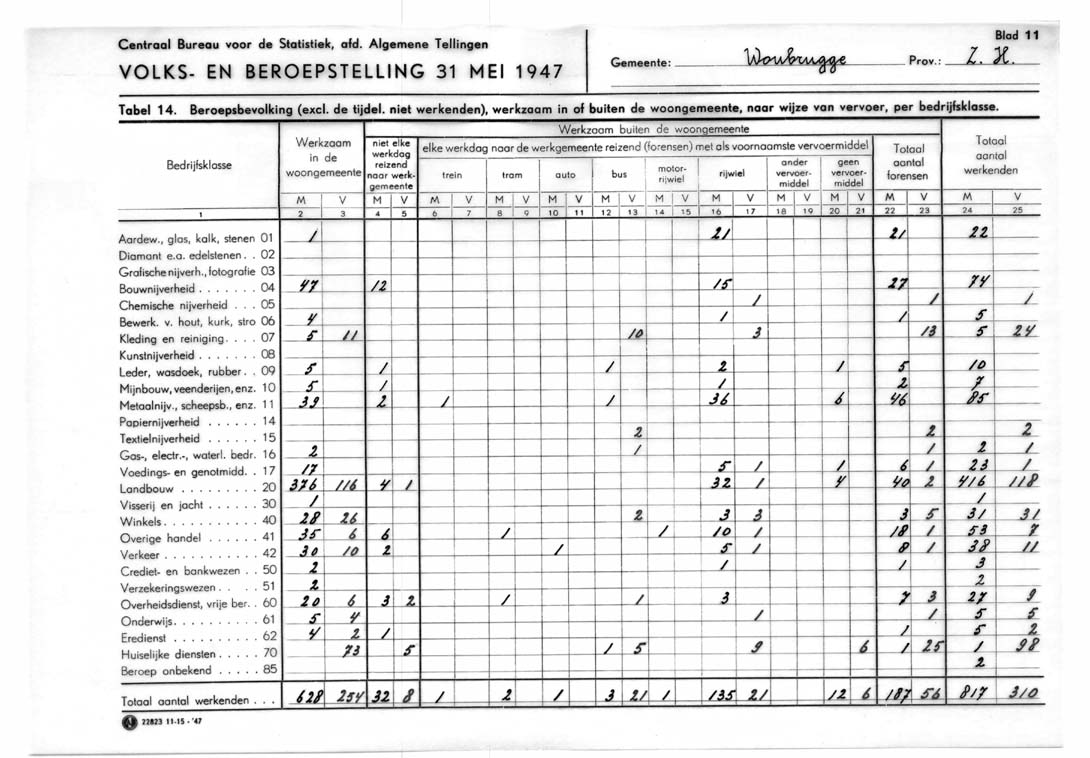 Centraal Bureau voor de Statistiek, afd. Algemene Tellingen
VOLKS- EN BEROEPSTELLING 31 MEI 1947
Blad 11
Gemeente: Woubrugge Prov.: Z. H.
Tabel 14. Beroepsbevolking (excl. de tijdel. niet werkenden), werkzaam in of buiten de woongemeente, naar wijze van vervoer, per bedrijfsklasse.
Bedrijfsklasse
Werkzaam in de woongemeente
Werkzaam buiten de woongemeente
niet elke werkdag reizend naar werk-gemeente
elke werkdag naar de werkgemeente reizend (forensen) met als voornaamste vervoermiddel
trein tram auto bus motor-rijwiel rijwiel ander vervoer-middel geen vervoer-middel
Totaal aantal forensen
Totaal aantal werkenden
M V M V M V M V M V M V M V M V M V M V M V M V
1 2 3 4 5 6 7 8 9 10 11 12 13 14 15 16 17 18 19 20 21 22 23 24 25
Aardew., glas, kalk, stenen 01 1 21 21 22
Diamant e.a. edelstenen . . 02
Grafische nijverh., fotografie 03
Bouwnijverheid . . . . . . . 04 47 12 15 27 74
Chemische nijverheid . . . 05 1 1 1
Bewerk. v. hout, kurk, stro 06 4 1 1 5
Kleding en reiniging. . . . 07 5 11 10 3 13 5 24
Kunstnijverheid . . . . . . . 08
Leder, wasdoek, rubber. . 09 5 1 1 2 1 5 10
Mijnbouw, veenderijen, enz. 10 5 1 1 2 7
Metaalnijv., scheepsb., enz. 11 39 2 1 1 36 6 46 85
Papiernijverheid . . . . . . 14
Textielnijverheid . . . . . . 15 2 2 2
Gas-, electr.-, waterl. bedr. 16 2 1 1 2 1
Voedings- en genotmidd. . 17 17 5 1 1 6 1 23 1
Landbouw . . . . . . . . . 20 376 116 4 1 32 1 4 40 2 416 118
Visserij en jacht . . . . . . . 30 1 1
Winkels. . . . . . . . . . . . 40 28 26 2 3 3 3 5 31 31
Overige handel . . . . . . . 41 35 6 6 1 1 10 1 18 1 53 7
Verkeer . . . . . . . . . . . 42 30 10 2 1 5 1 8 1 38 11
Crediet- en bankwezen . . 50 2 1 1 3
Verzekeringswezen . . . . 51 2 2
Overheidsdienst, vrije ber. . 60 20 6 3 2 1 1 3 7 3 27 9
Onderwijs. . . . . . . . . . . 61 5 4 1 1 5 5
Eredienst . . . . . . . . . . 62 4 2 1 1 5 2
Huiselijke diensten . . . . . 70 73 5 1 5 9 6 1 25 1 98
Beroep onbekend . . . . . 85 2
Totaal aantal werkenden . . . 628 254 32 8 1 2 1 3 21 1 135 21 12 6 187 56 817 310
22823 11-15 - '47